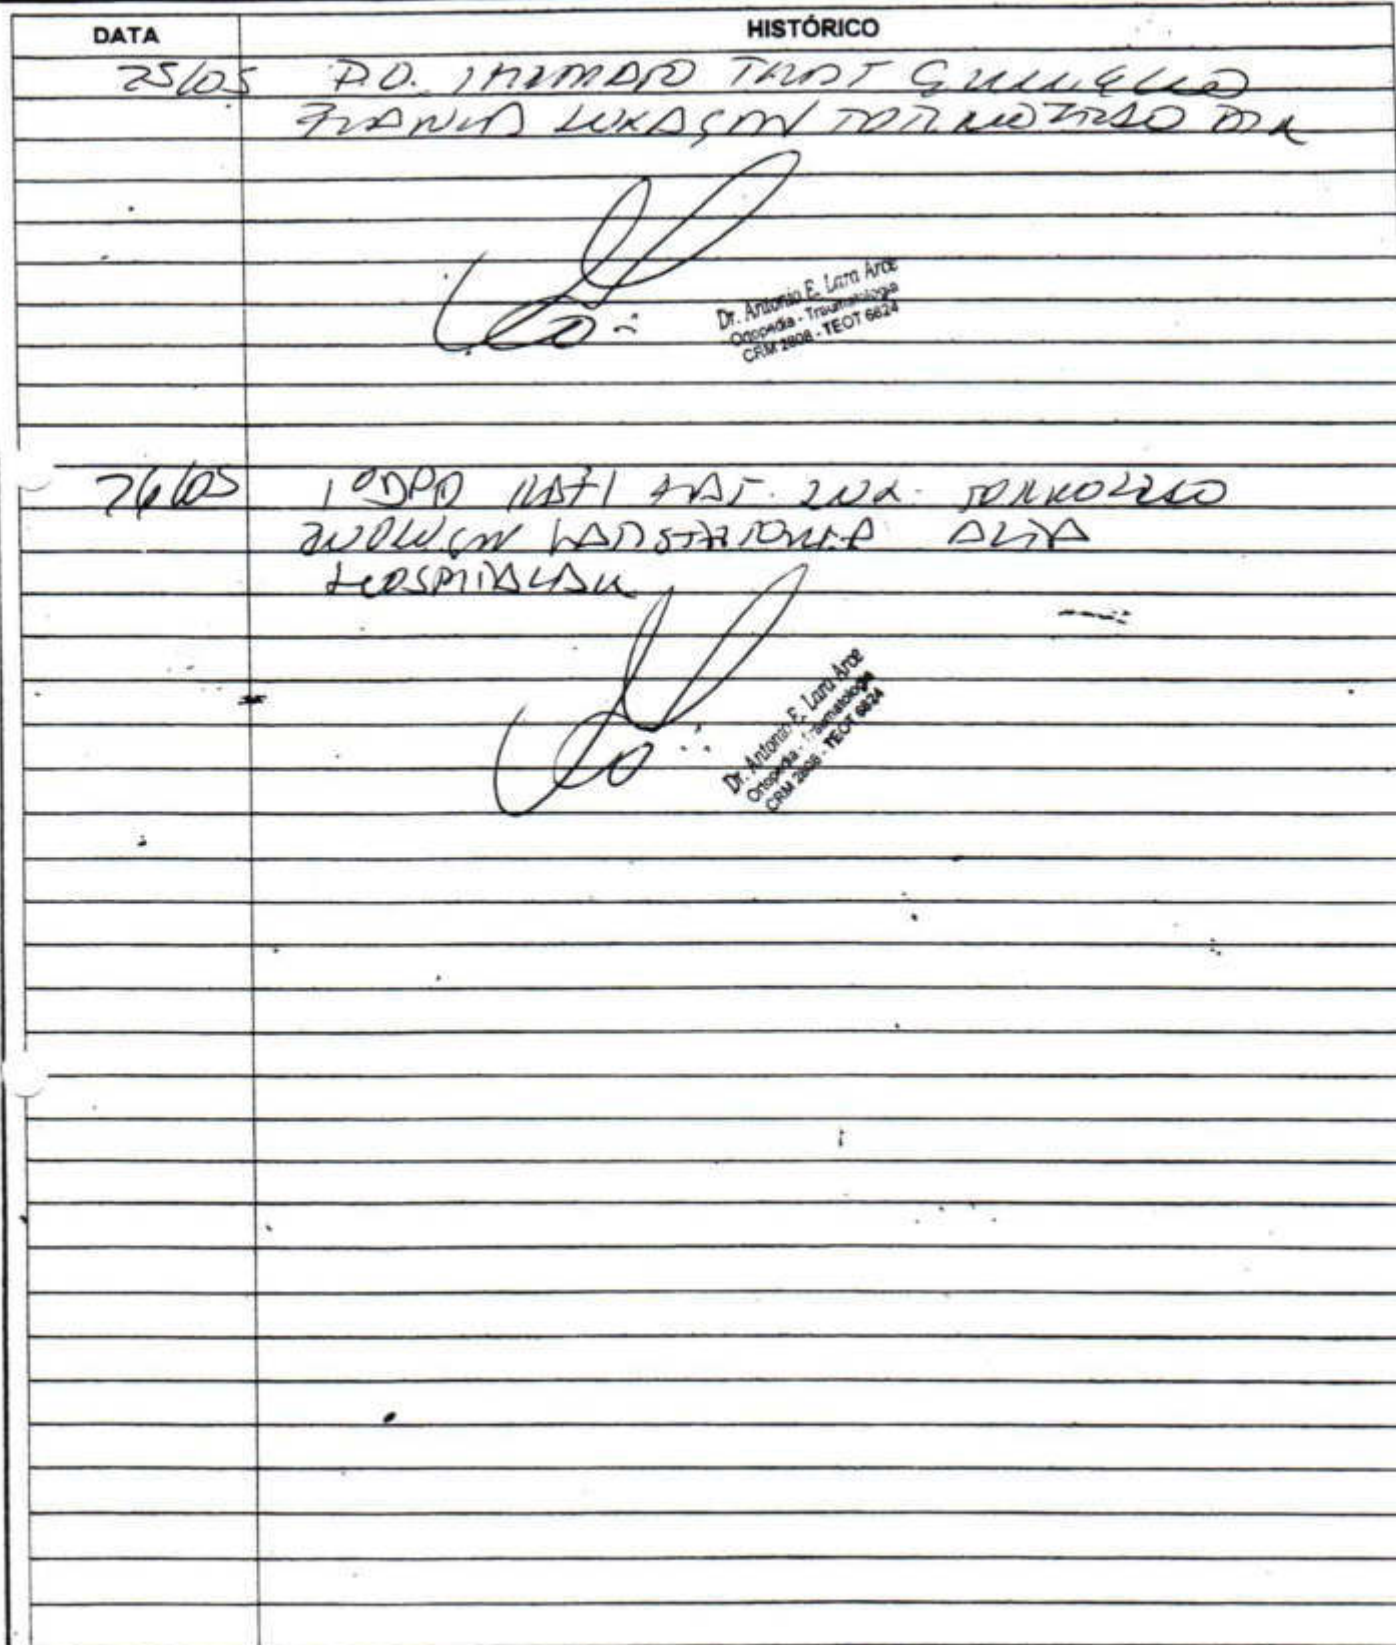 DATA
HISTÓRICO
25/05 P.O. IMEDIATO TRAT CIRURGICO
FRATURA LUXAÇÃO TORNOZELO DIR
Dr. Antonio E. Lara Arce
Ortopedia - Traumatologia
CRM 2808 - TEOT 6624
26/05 1º DPO FRAT. LUX. TORNOZELO
EVOLUÇÃO SATISFATORIA ALTA
HOSPITALAR
Dr. Antonio E. Lara Arce
Ortopedia - Traumatologia
CRM 2808 - TEOT 6624